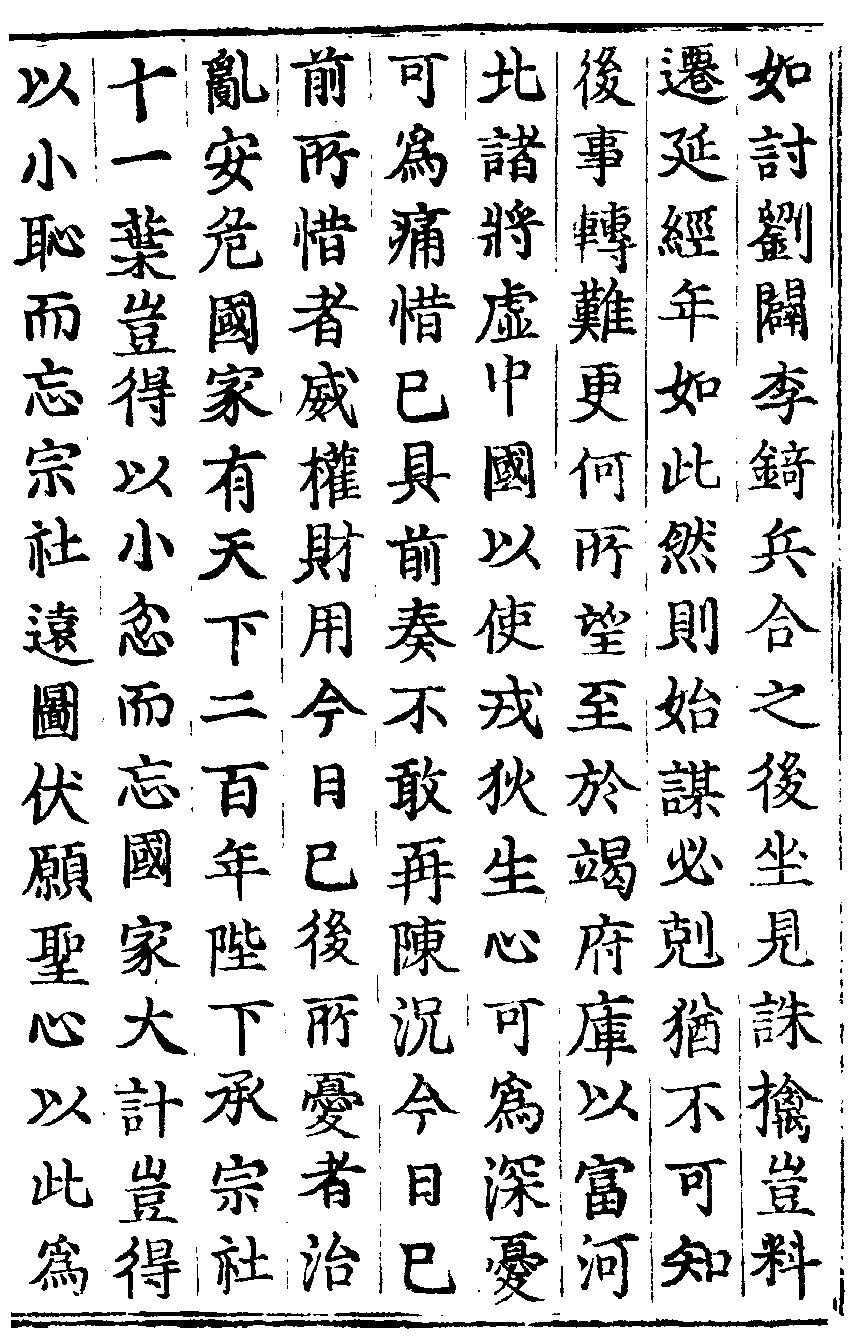 如討劉闢李錡兵合之後坐見誅擒豈料
遷延經年如此然則始謀必剋猶不可知
後事轉難更何所望至於竭府庫以富河
北諸將虛中國以使戎狄生心可爲深憂
可爲痛惜已具前奏不敢再陳況今日已
前所惜者威權財用今日已後所憂者治
亂安危國家有天下二百年陛下承宗社
十一葉豈得以小忿而忘國家大計豈得
以小恥而忘宗社遠圖伏願聖心以此爲